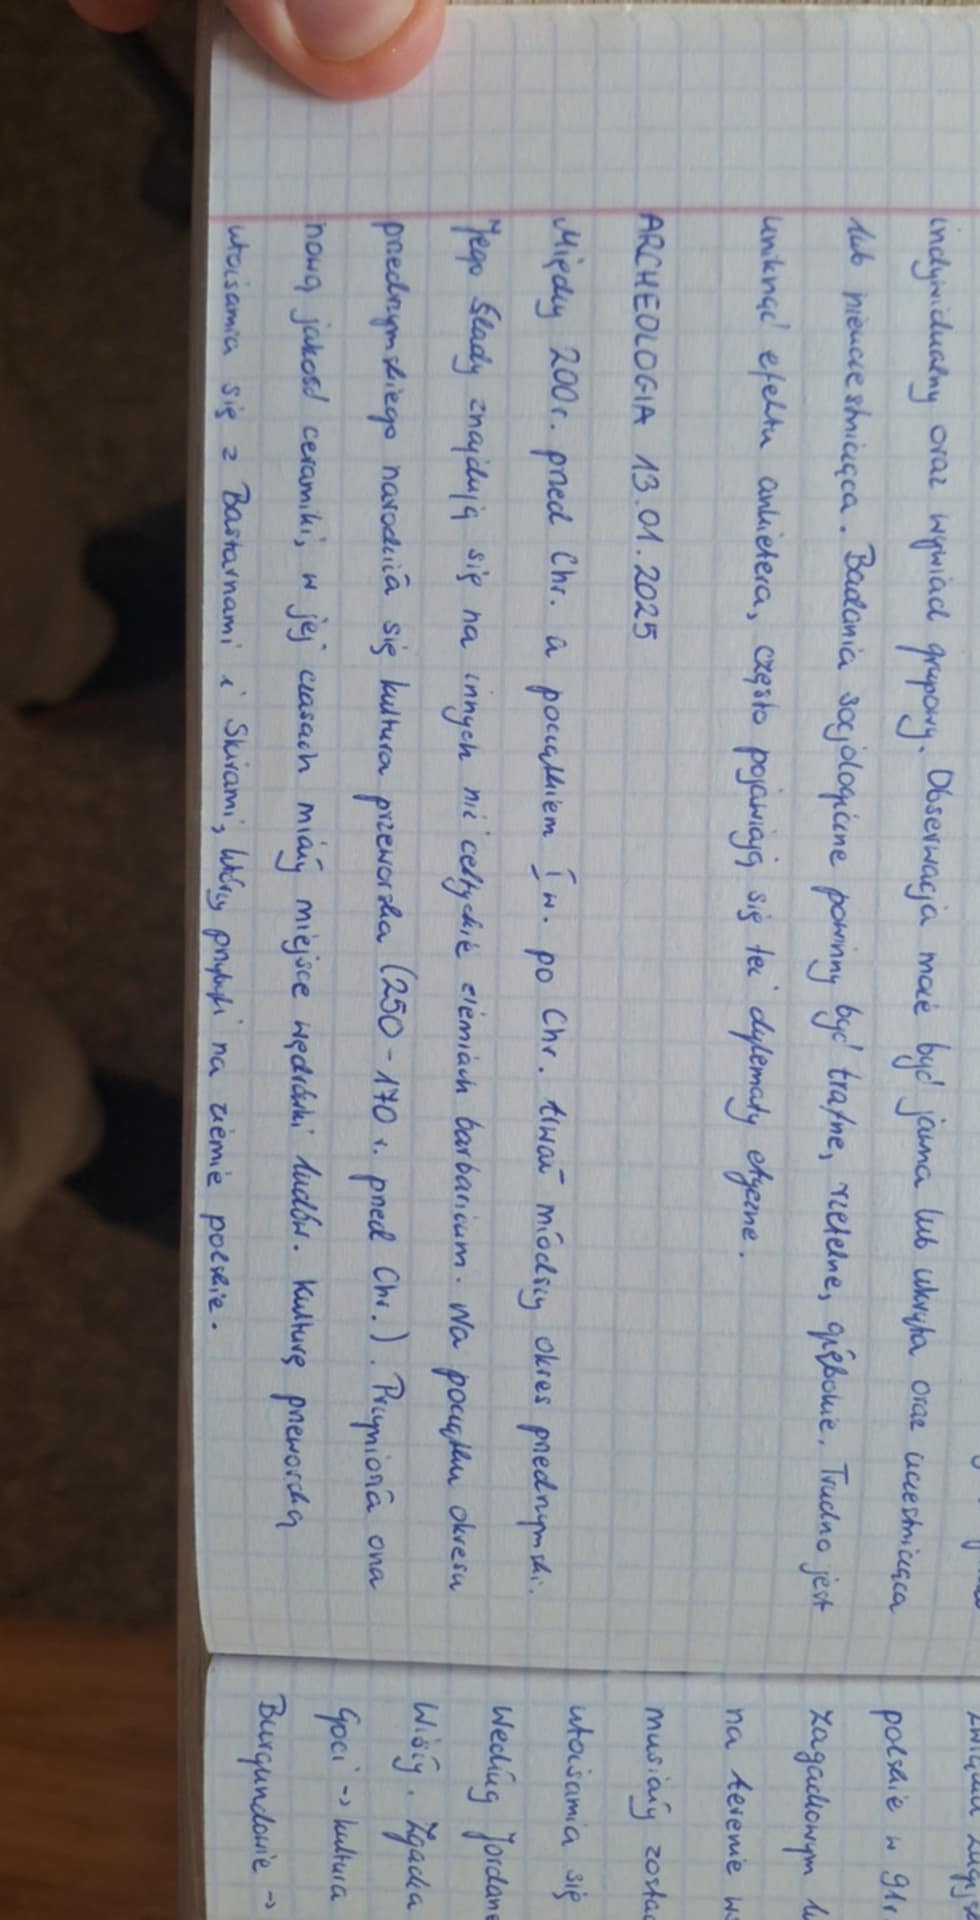 indywidualny oraz wywiad grupowy. Obserwacja może być jawna lub ukryta oraz uczestnicząca
lub nieuczestnicząca. Badania socjologiczne powinny być trafne, rzetelne, głębokie. Trudno jest
uniknąć efektu ankietera, często pojawiają się też dylematy etyczne.
ARCHEOLOGIA 13.01.2025
Między 200r. przed Chr. a początkiem I w. po Chr. trwał młodszy okres przedrzymski.
Jego ślady znajdują się na innych niż celtyckie ziemiach barbaricum. Na początku okresu
przedrzymskiego narodziła się kultura przeworska (250-170 r. przed Chr.). Przyniosła ona
nową jakość ceramiki, w jej czasach miały miejsce wędrówki ludów. Kulturę przeworską
utożsamia się z Bastarnami i Skirami, którzy przybyli na ziemie polskie.
polskie w
zagadkowym
na terenie
musiały
utożsamia się
Według
Wisły. Zgadza
Goci -> kultura
Burgundowie ->